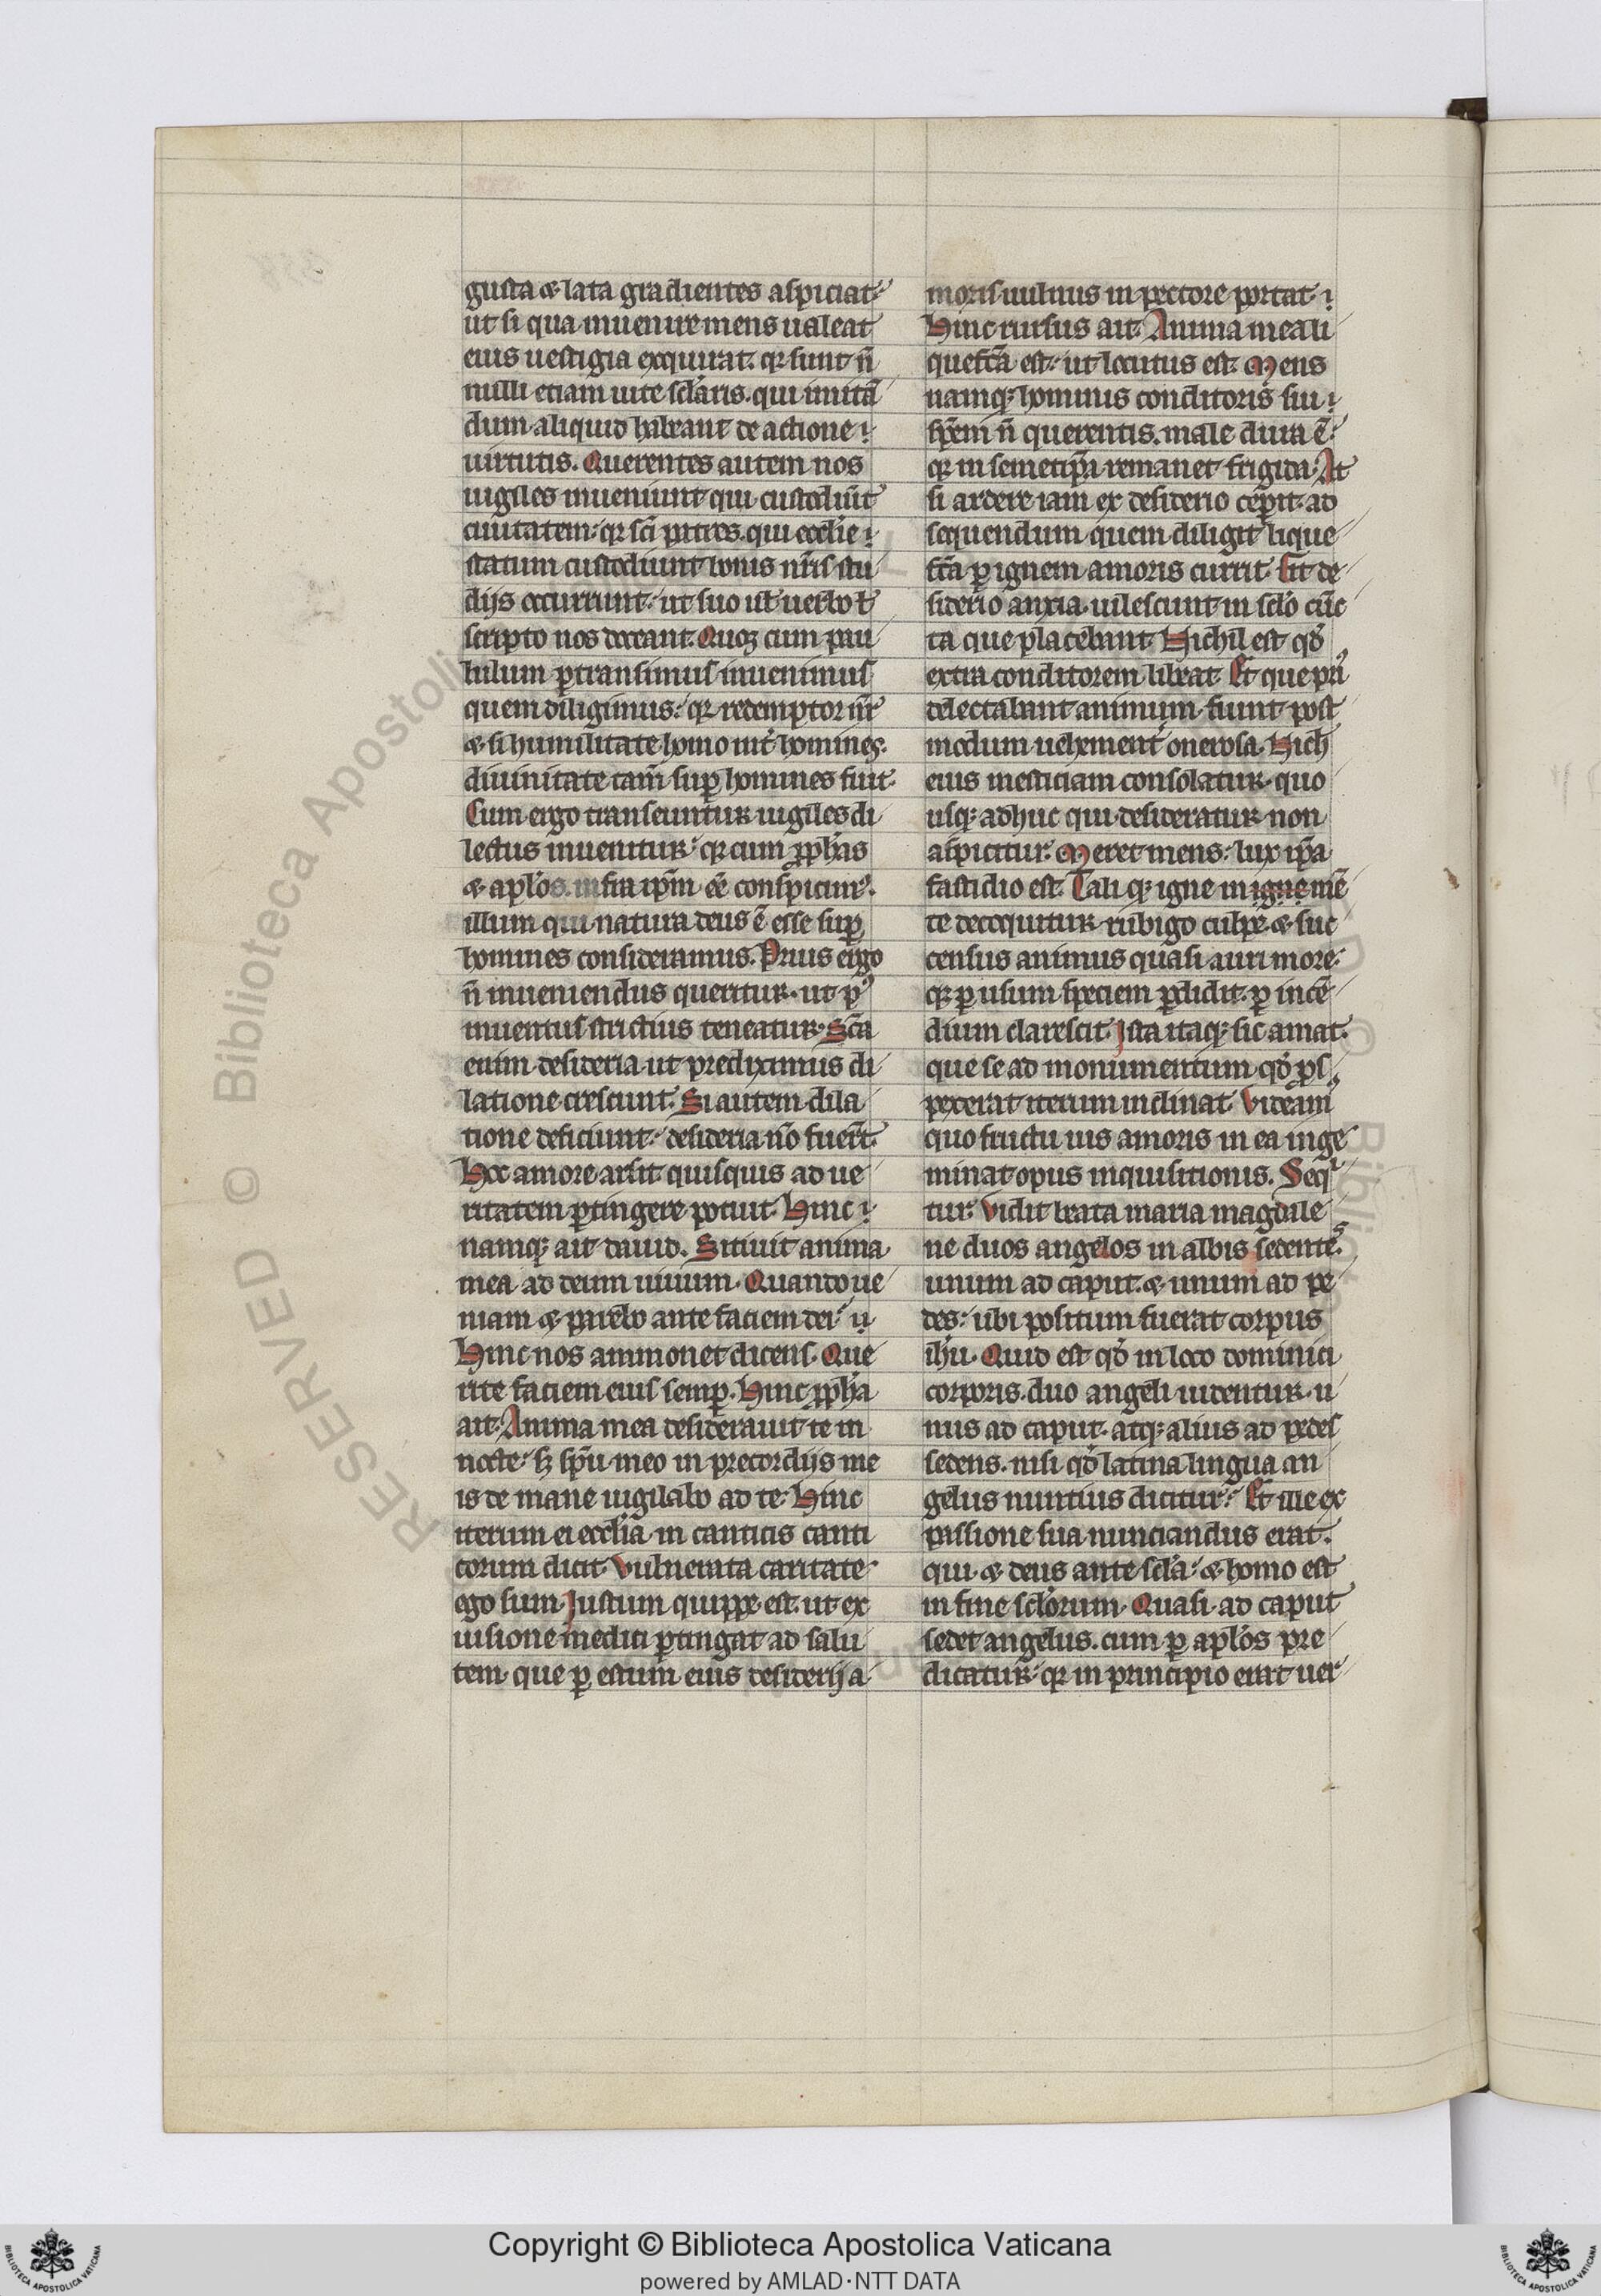 gusta ⁊ lata gradientes aspiciat
ut si qua inuenire mens ualeat
eius uestigia exquirat. qr sunt n̄
nulli etiam uite sclaris. qui imitā
dum aliquid habeant de actione
uirtutis. Querentes autem nos
uigiles inueniunt qui custodiūt
ciuitatem. qr sc̄i patres. qui ecclie
statum custodiunt bonis nr̄is stu
dijs occurrunt. ut suo ul uerbo ul
scripto nos doceant. Quoꝝ cum pau
lulum ꝑtransimus inuenimus
quem diligimus. qr redemptor nr̄
⁊ si humilitate homo int̉ homines.
diuinitate tam̄ suꝑ homines fuit.
Cum ergo transeuntur uigiles di
lectus inuenitur. qr cum ꝓphas
⁊ aplos infra ipm̄ ee̅ conspicim⁹.
illum qui natura deus ē esse suꝑ
homines consideramus. Prius ergo
n̄ inueniendus queritur. ut p⁹
inuentus strictius teneatur. Sc̄a
enim desideria ut prediximus di
latione crescunt. Si autem dila
tione deficiunt. desideria nō fuer̄t.
Hoc amore arsit quisquis ad ue
ritatem ꝑtingere potuit. Hinc
namqꝫ ait dauid. Sitiuit anima
mea ad deum uiuum. Quando ue
niam ⁊ parebo ante faciem dei.
Hinc nos ammonet dicens. Que
rite faciem eius semꝑ. Hinc ꝓpha
ait. Anima mea desiderauit te in
nocte. sꝫ spu meo in precordijs me
is de mane uigilabo ad te. Hinc
iterum ei ecclia in canticis canti
corum dicit. Vulnerata caritate
ego sum. Justum quippe est. ut ex
uisione medici ꝑtingat ad salu
tem. que ꝑ estum eius desiderij a
moris uulnus in pectore portat.
Hinc rursus ait. Anima mea li
quefc̄a est. ut locutus est. Mens
namqꝫ hominis conditoris sui
spēm n̄ querentis. male dura ē.
qr in semetip̄a remanet frigida. At
si ardere iam ex desiderio cepit. ad
sequendum quem diligit lique
fc̄a ꝑ ignem amoris currit. Fit de
siderio anxia. uilescunt in sclo cūc
ta que placebant. Nichil est qd̉
extra conditorem libeat. Et que pri⁹
delectabant animum. fiunt post
modum uehement̉ onerosa. Nich̉
eius mesticiam consolatur. quo
usqꝫ adhuc qui desideratur non
aspicitur. Meret mens. lux ip̄a
fastidio est. Tali qꝫ igne in igne mē
te decoquitur rubigo culpe. ⁊ suc
census animus quasi auri more.
qꝫ ꝑ usum speciem ꝑdidit. ꝑ incē
dium clarescit. Ista itaqꝫ sic amat.
que se ad monumentum qd̉ ꝑs
pexerat iterum inclinat. Videam⁹
quo fructu uis amoris in ea inge
minat opus inquisitionis. Seq
tur. Vidit beata maria magdale
ne duos angelos in albis sedentes.
unum ad caput. ⁊ unum ad pe
des. ubi positum fuerat corpus
ihu. Quid est qd̉ in loco dominici
corporis. duo angeli uidentur. u
nus ad caput. atqꝫ alius ad pedes
sedens. nisi qd̉ latina lingua an
gelus nuntius dicitur. Et ille ex
passione sua nunciandus erat.
qui ⁊ deus ante scla. ⁊ homo est
in fine sclorum. Quasi ad caput
sedet angelus. cum ꝑ aplos pre
dicatur. qr in principio erat uer
Copyright © Biblioteca Apostolica Vaticana
powered by AMLAD·NTT DATA